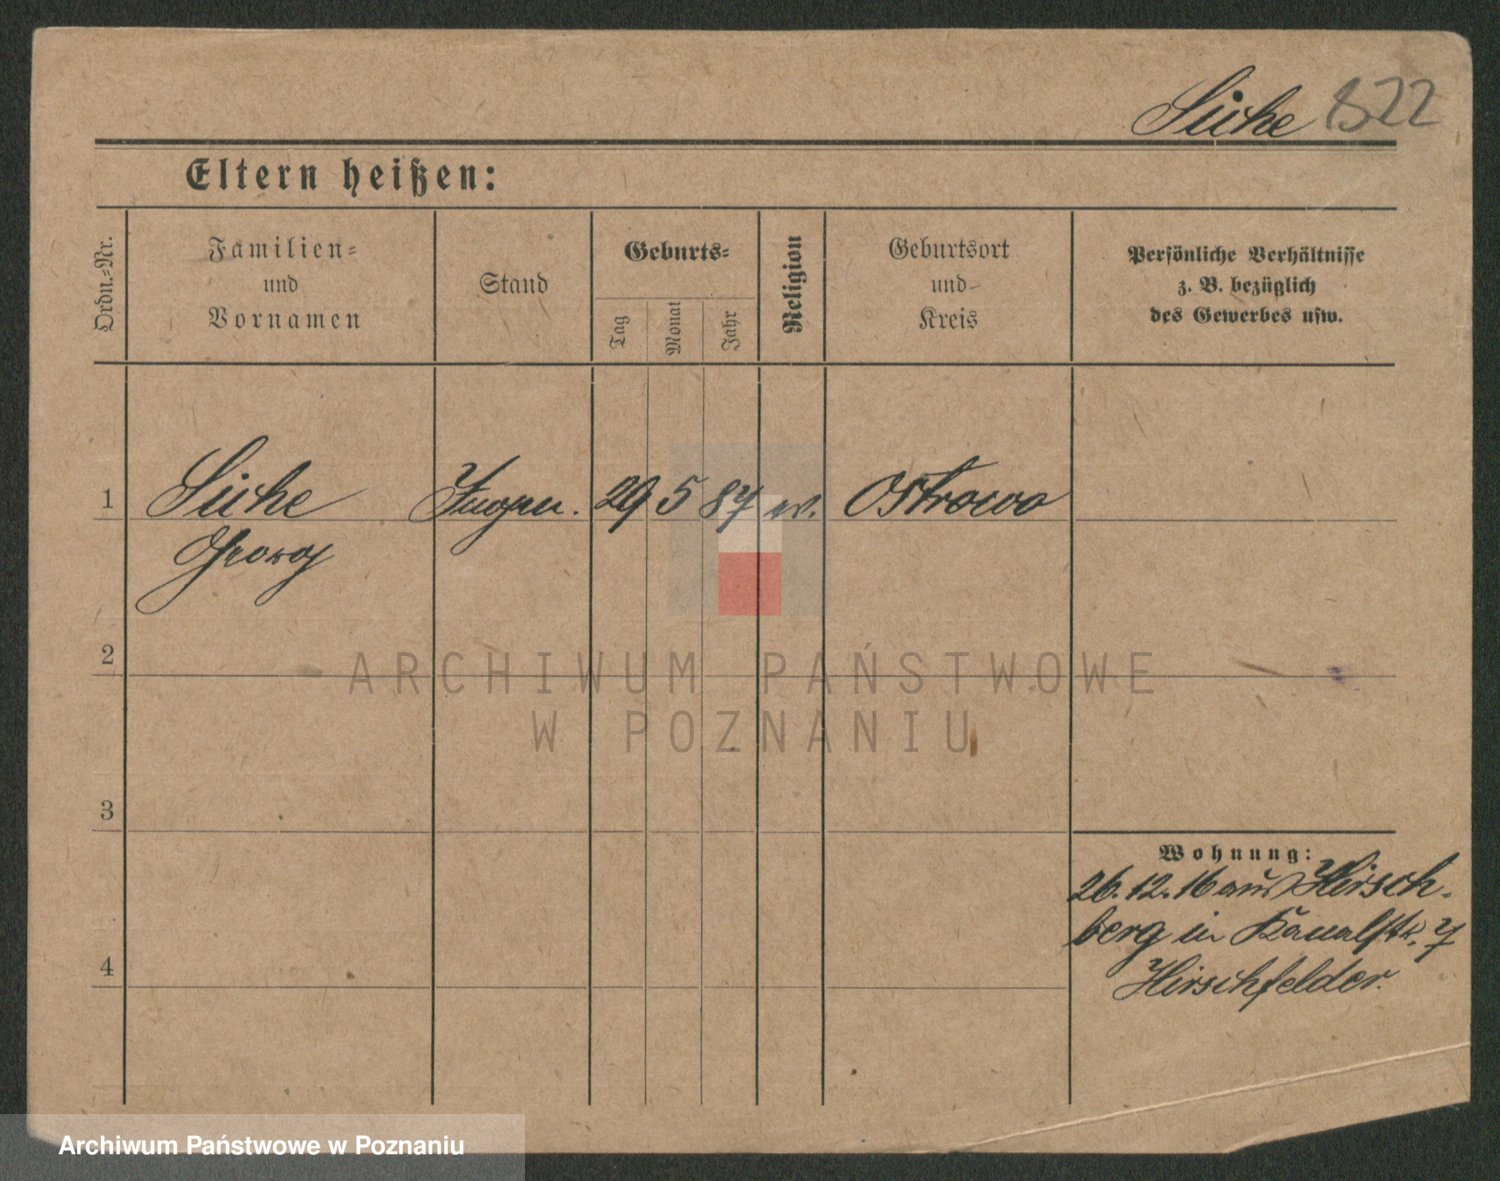 Süche 822
Eltern heißen:
Ordn.-Nr.
Familien-
und
Vornamen
Stand
Geburts-
Tag
Monat
Jahr
Religion
Geburtsort
und
Kreis
Persönliche Verhältnisse
z. B. bezüglich
des Gewerbes usw.
1 29 5 87 Ostrowo
Georg
2
ARCHIWUM PAŃSTWOWE
W POZNANIU
3
4
Wohnung:
26.12.16 aus Hirsch-
berg in Kanalstr. 7
Hirschfelder.
Archiwum Państwowe w Poznaniu